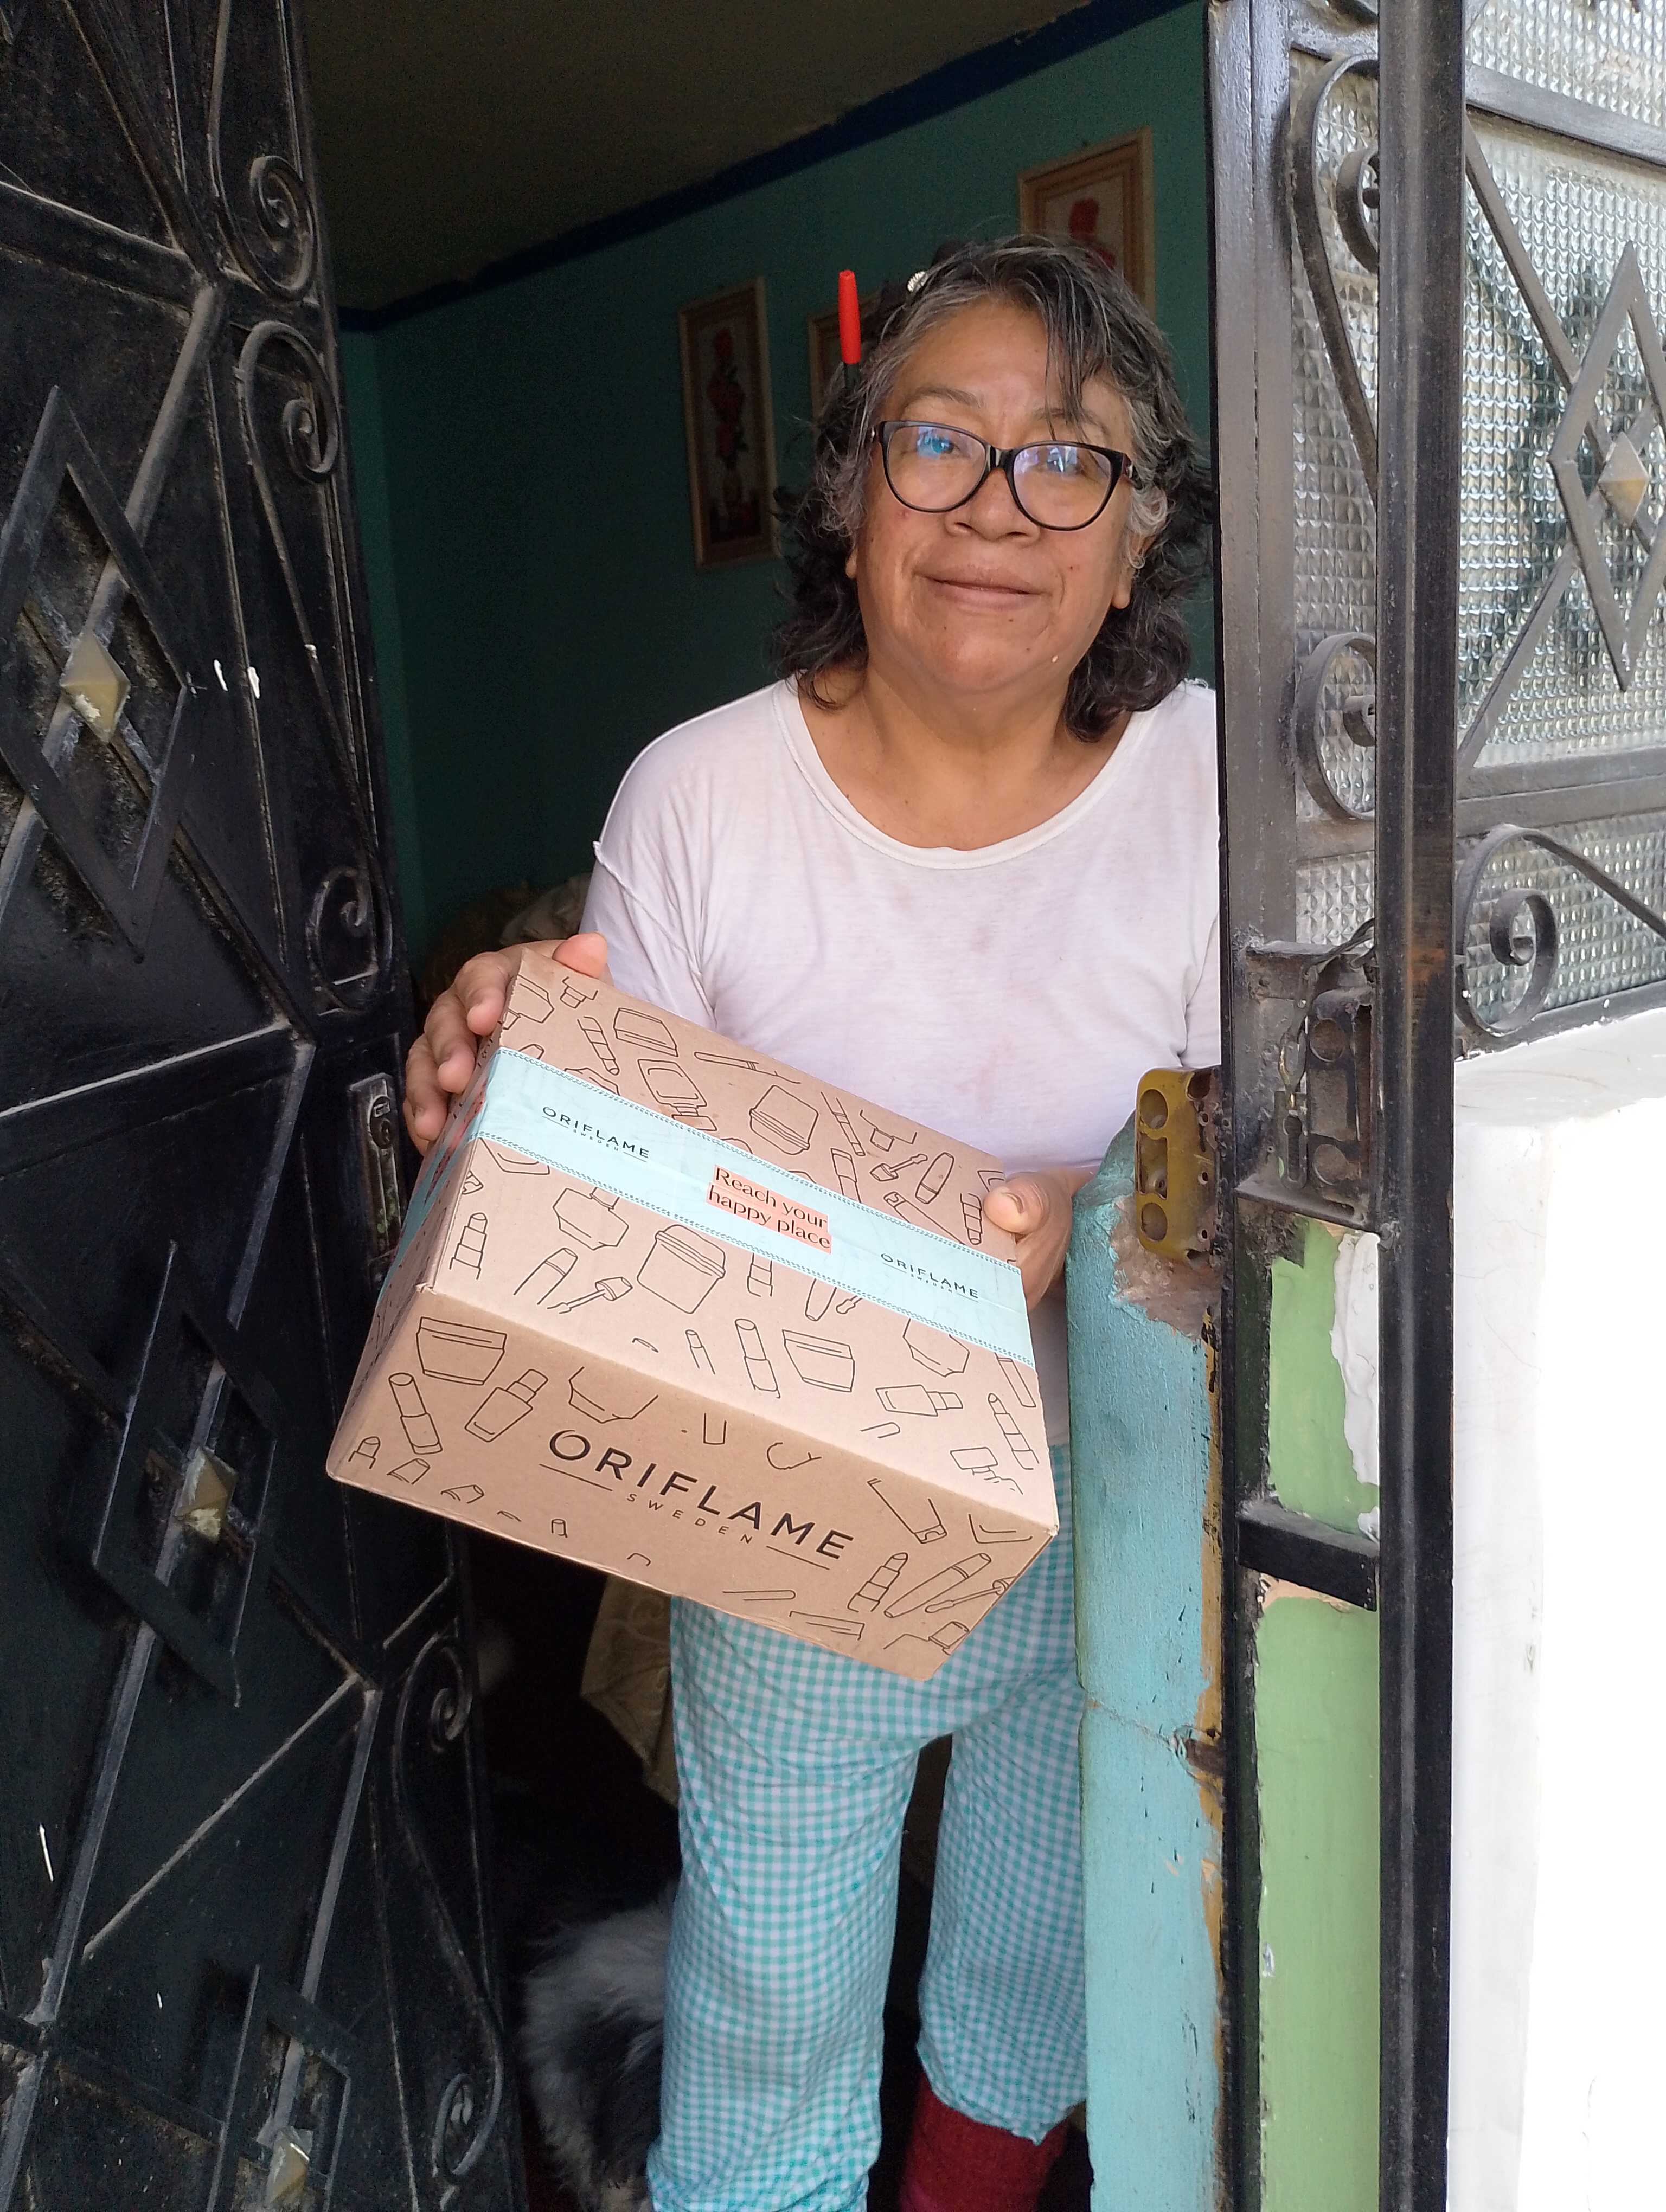 ORIFLAME
SWEDEN
Reach your
happy place
ORIFLAME
SWEDEN
ORIFLAME
SWEDEN